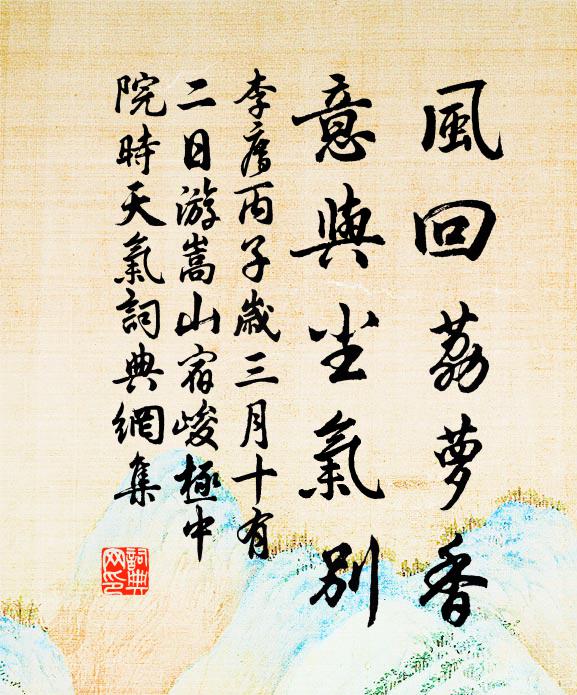 風回荔萝香
意與尘氣别
李廌丙子歲三月十有
二日游嵩山宿峻極中
院時天氣詞典網集
詞典
网印